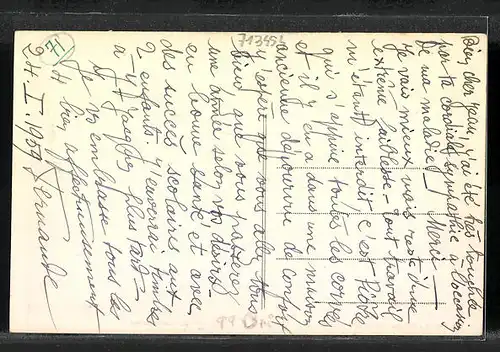 Bien cher Jean, j'ai été très touchée
par ta cordiale sympathie à l'occasion
de ma maladie. Merci —
Je vais mieux mais reste d'une
extrême faiblesse — tout travail
m'étant interdit c'est Pierre
qui s'appuie toutes les corvées
et il y en a dans une maison
ancienne dépourvue de confort
J'espère que vous allez tous
bien, que vous passerez
une année selon vos désirs
en bonne santé et avec
des succès scolaires aux
2 enfants. J'enverrai timbres
à Jacques plus tard —
Je vous embrasse tous les
4 bien affectueusement
24. I. 1959 Fernande
713451